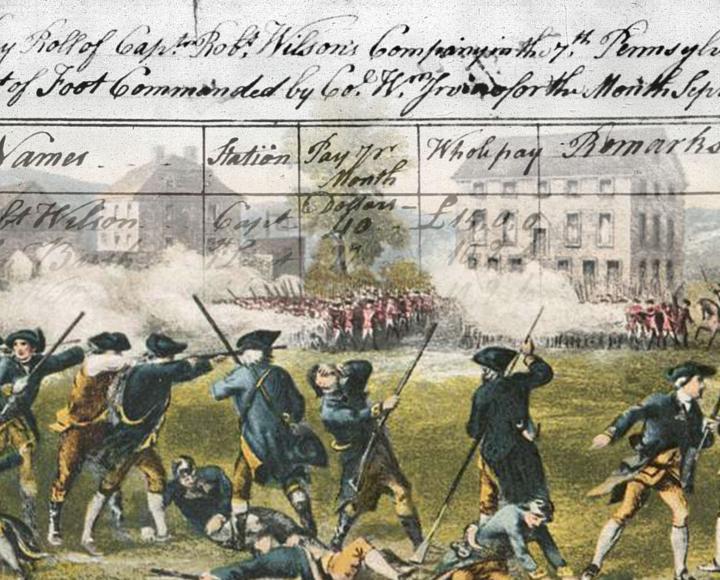 y Roll of Capt Robt Wilson's Company in the 7th Pennsylv
t of Foot Commanded by Col Wm Irvine for the Month Sept
Names Station Pay Pr Month Whole pay Remarks
Dollars
bt Wilson Capt 40 £15,0,0